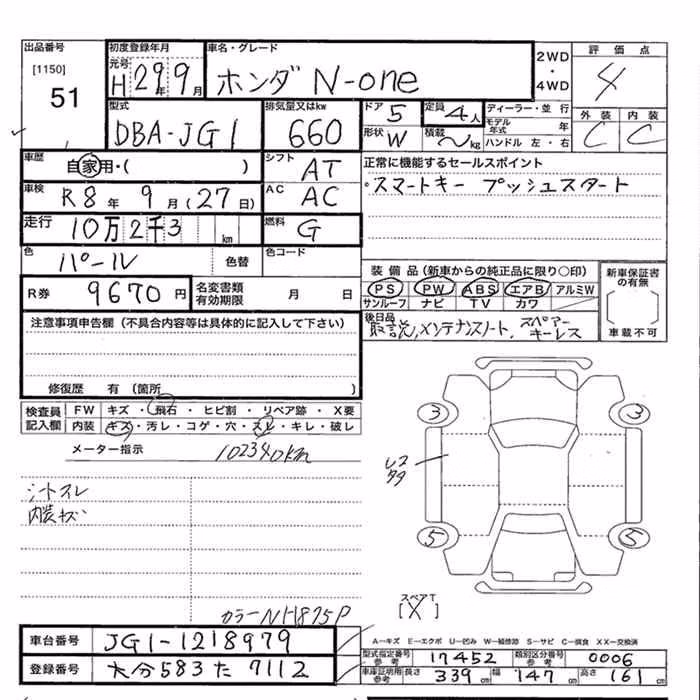 出品番号 初度登録年月 車名・グレード 評価点
[1150] 元号 2WD
51 H 29年 9月 ホンダ N-one ・ 4
4WD
型式 排気量又はkw ドア 5 定員 4人 ディーラー・並行 外装 内装
DBA-JG1 660 形状 W 積載 kg モデル年式 年 C C
ハンドル 左・右
車歴 自家用・( ) シフト AT 正常に機能するセールスポイント
車検 R8年 9月(27日) AC AC ・スマートキー プッシュスタート
走行 10万2千3 km 燃料 G
色 パール 色替 色コード
装備品(新車からの純正品に限り○印) 新車保証書の有無
R券 9670円 名変書類有効期限 月 日 PS PW ABS エアB アルミW
サンルーフ ナビ TV カワ
注意事項申告欄(不具合内容等は具体的に記入して下さい) 後日品 取説,メンテナンスノート,スペアーキーレス 車載不可
修復歴 有(箇所
検査員記入欄 FW キズ・飛石・ヒビ割・リペア跡・X要
内装 キズ・汚レ・コゲ・穴・スレ・キレ・破レ
メーター指示 102340km
3 3
シートスレ
内装キズ
5 5
スペアT
[X]
カラーNH875P
A―キズ E―エクボ U―凹み W―補修跡 S―サビ C―腐食 XX―交換済
車台番号 JG1-1218979 型式指定番号 参考 17452 類別区分番号 参考 0006
登録番号 大分583た7112 車庫証明用 参考 長さ 339cm 幅 147cm 高さ 161cm